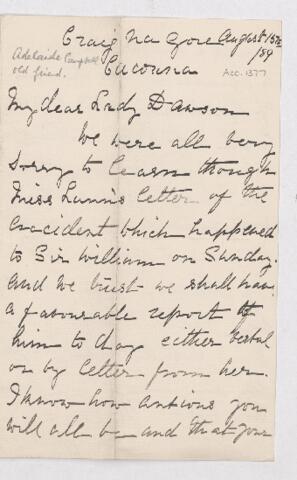 Craig Na Gore August 15th
/89
Adelaide Campbell
old friend.
Cacouna
Acc. 1377
My dear Lady Dawson
We were all very
sorry to learn though
Miss Lunn's letter of the
accident which happened
to Sir William on Sunday.
and we trust we shall have
a favourable report of
him to day either verbal
or by letter from her.
I know how anxious you
will all be and that your